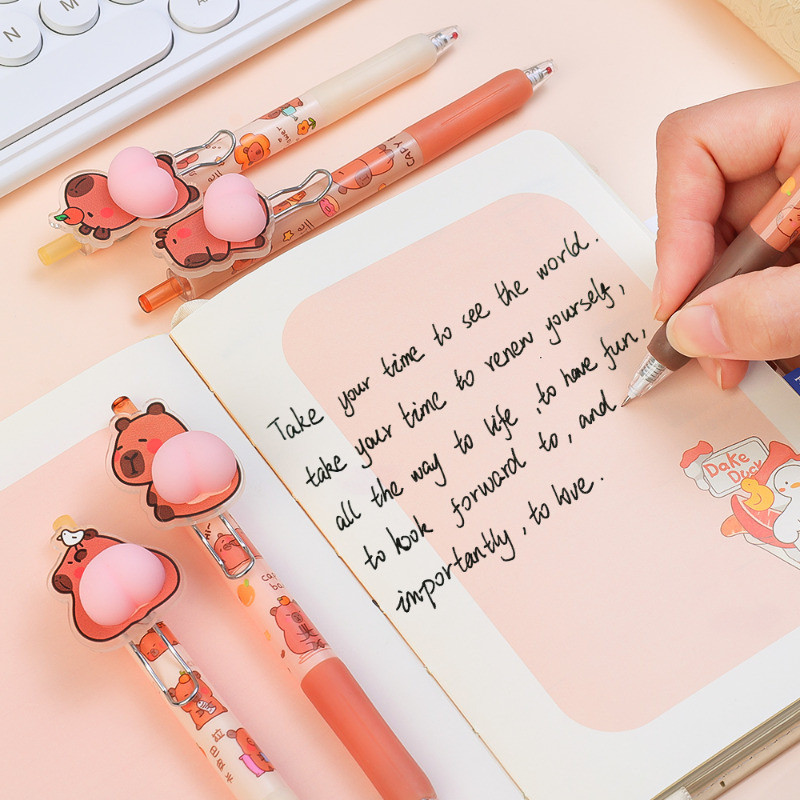 N
M
CAPY
Take your time to see the world.
take your time to renew yourself,
all the way to life , to have fun,
to look forward to , and
importantly , to love.
Dake
Duck